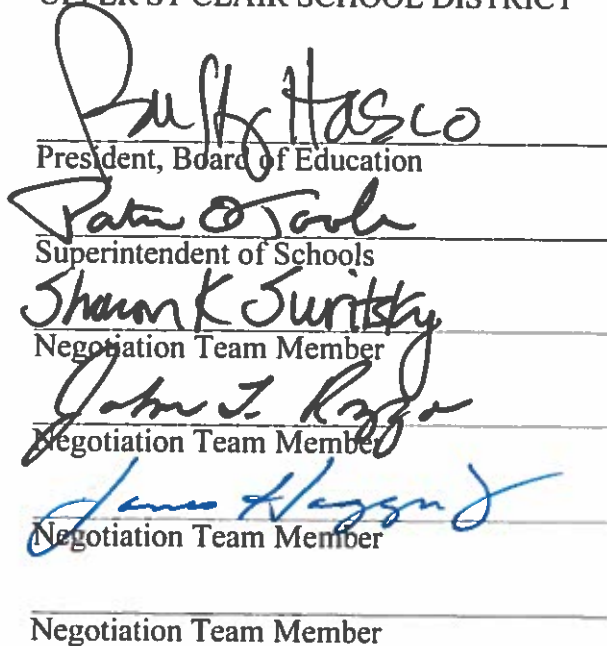 UPPER ST CLAIR SCHOOL DISTRICT
Buffy Hasco
President, Board of Education
Patrick O'Toole
Superintendent of Schools
Sharon K Suritsky
Negotiation Team Member
John T. Rozzo
Negotiation Team Member
James
Negotiation Team Member
Negotiation Team Member